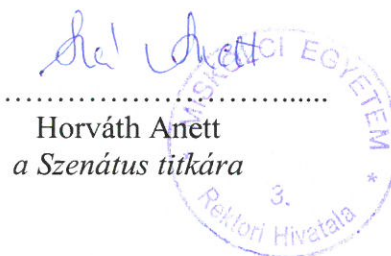 ........................................
Horváth Anett
a Szenátus titkára
MISKOLCI EGYETEM
* 3. *
Rektori Hivatala